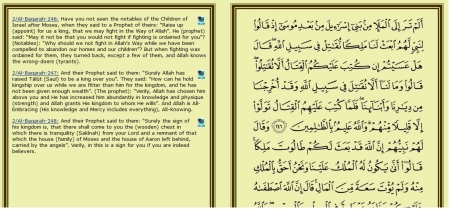 2/Al-Baqarah-246: Have you not seen the notables of the Children of
Israel after Moses, when they said to a Prophet of them: "Raise up
(appoint) for us a king, that we may fight in the Way of Allah". He (prophet)
said: "May it not be that you would not fight if fighting is ordained for you"?
(Notables): "Why should we not fight in Allah's Way while we have been
compelled to abandon our homes and our children"? But when fighting was
ordained for them, they turned back, except a few of them, and Allah knows
the wrong-doers (tyrants).
2/Al-Baqarah-247: And their Prophet said to them: "Surely Allah has
raised Tâlût (Saul) to be a king over you". They said: "How can he hold
kingship over us while we are fitter than him for the kingdom, and he has
not been given enough wealth". (The prophet): "Verily, Allah has chosen him
above you and he has increased him abundantly in knowledge and physique
(strength) and Allah grants His kingdom to whom He wills". And Allah is All-
Embracing (His knowledge and Mercy includes everything), All-Knowing.
2/Al-Baqarah-248: And their Prophet said to them: "Surely the sign of
his kingdom is, that there shall come to you the (wooden) chest in
which there is tranquility (Sakînah) from your Lord and a remnant of that
which the House (family) of Moses and the house of Aaron left behind,
carried by the angels". Verily, in this is a sign for you if you are indeed
believers.
أَلَمْ تَرَ إِلَى ٱلْمَلَإِ مِنۢ بَنِىٓ إِسْرَٰٓءِيلَ مِنۢ بَعْدِ مُوسَىٰٓ إِذْ قَالُوا۟
لِنَبِىٍّ لَّهُمُ ٱبْعَثْ لَنَا مَلِكًا نُّقَٰتِلْ فِى سَبِيلِ ٱللَّهِ قَالَ
هَلْ عَسَيْتُمْ إِن كُتِبَ عَلَيْكُمُ ٱلْقِتَالُ أَلَّا تُقَٰتِلُوا۟
قَالُوا۟ وَمَا لَنَآ أَلَّا نُقَٰتِلَ فِى سَبِيلِ ٱللَّهِ وَقَدْ أُخْرِجْنَا
مِن دِيَٰرِنَا وَأَبْنَآئِنَا فَلَمَّا كُتِبَ عَلَيْهِمُ ٱلْقِتَالُ تَوَلَّوْا۟
إِلَّا قَلِيلًا مِّنْهُمْ وَٱللَّهُ عَلِيمٌۢ بِٱلظَّٰلِمِينَ ٢٤٦ وَقَالَ
لَهُمْ نَبِيُّهُمْ إِنَّ ٱللَّهَ قَدْ بَعَثَ لَكُمْ طَالُوتَ مَلِكًا
قَالُوٓا۟ أَنَّىٰ يَكُونُ لَهُ ٱلْمُلْكُ عَلَيْنَا وَنَحْنُ أَحَقُّ بِٱلْمُلْكِ
مِنْهُ وَلَمْ يُؤْتَ سَعَةً مِّنَ ٱلْمَالِ قَالَ إِنَّ ٱللَّهَ ٱصْطَفَىٰهُ